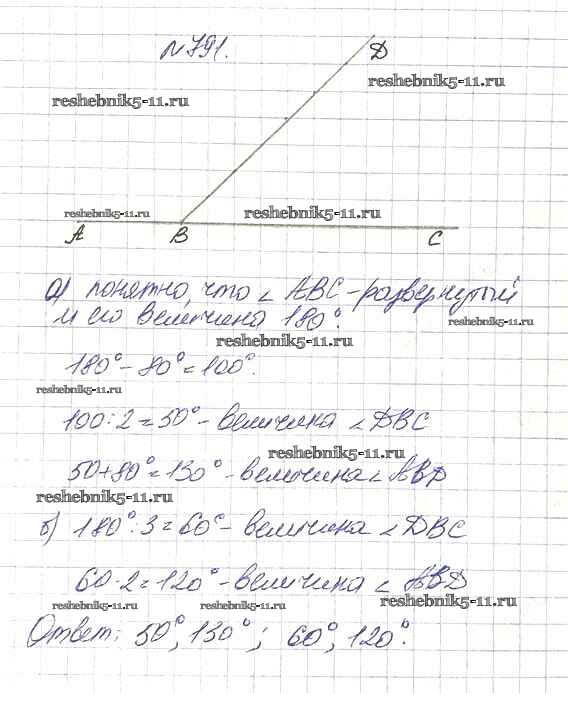 №791.
D
reshebnik5-11.ru
reshebnik5-11.ru
reshebnik5-11.ru
reshebnik5-11.ru
A B C
а) понятно, что ∠ABC – развернутый
и его величина 180°.
reshebnik5-11.ru
reshebnik5-11.ru
180° - 80° = 100°.
reshebnik5-11.ru
100 : 2 = 50° - величина ∠DBC
reshebnik5-11.ru
50 + 80° = 130° - величина ∠ABD
reshebnik5-11.ru
б) 180° : 3 = 60° - величина ∠DBC
60 · 2 = 120° - величина ∠ABD
reshebnik5-11.ru
reshebnik5-11.ru
reshebnik5-11.ru
Ответ: 50°, 130°; 60°, 120°.